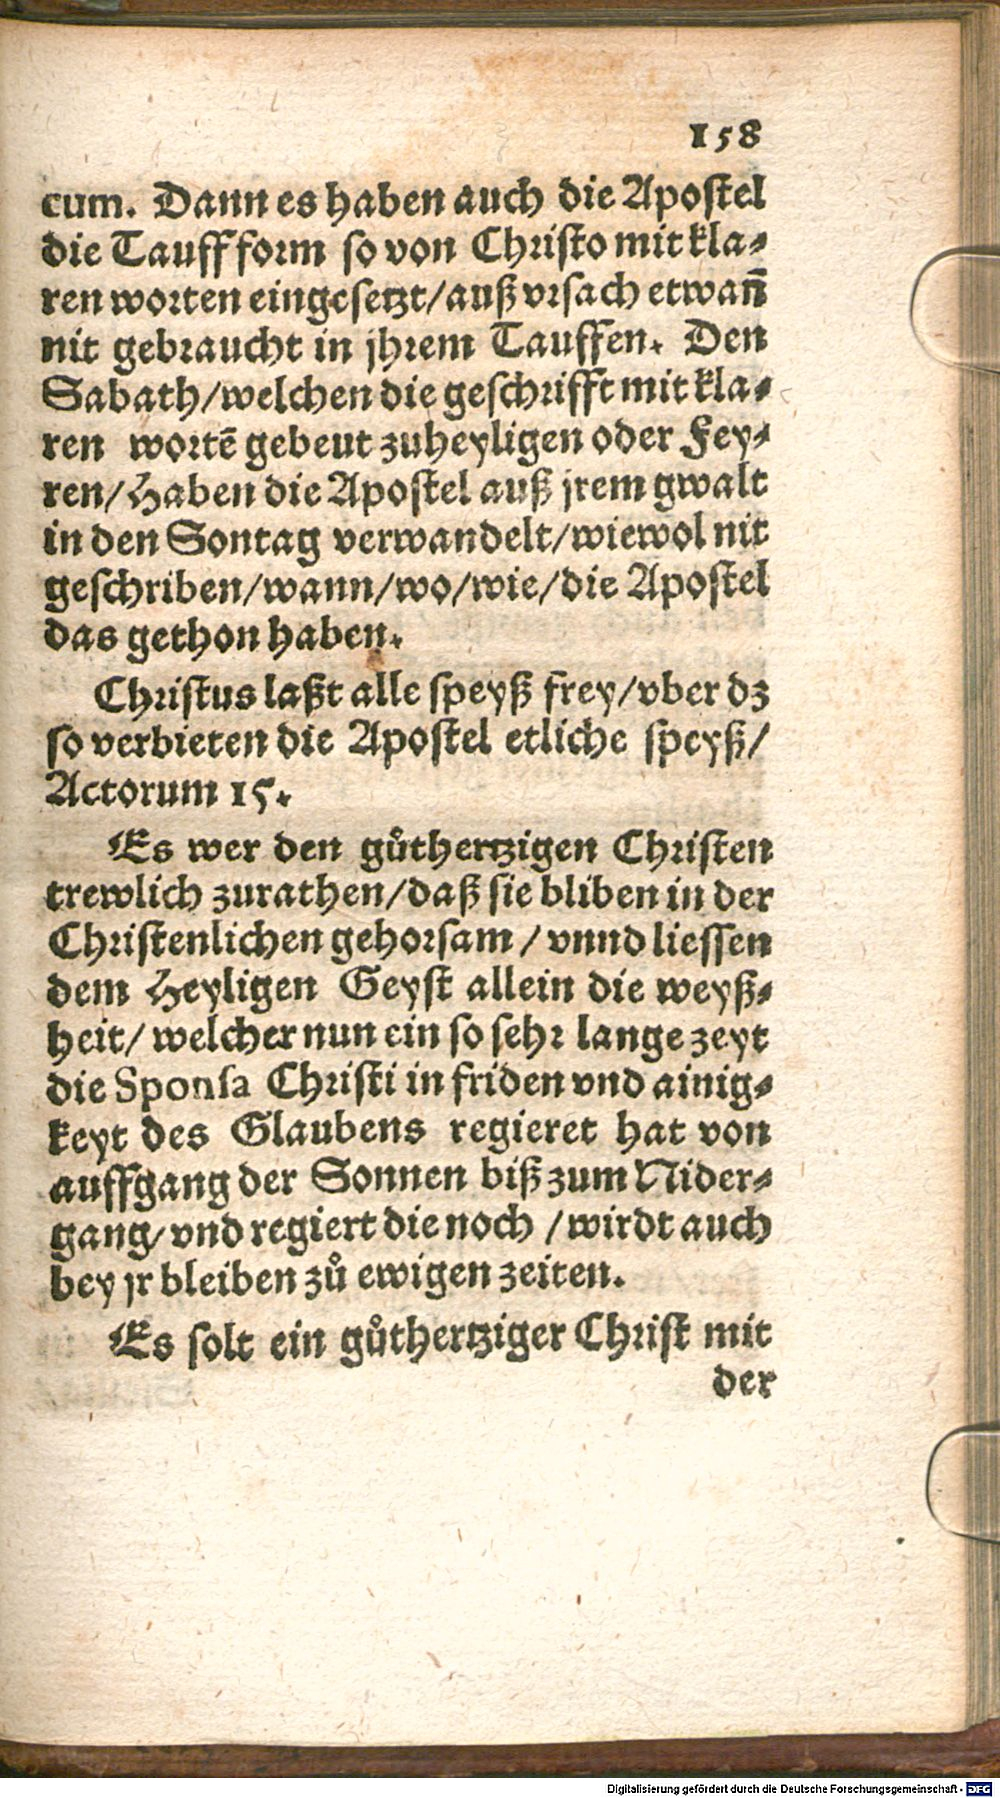 158
cum. Dann es haben auch die Apostel
die Tauff form so von Christo mit kla-
ren worten eingesetzt/auß vrsach etwañ
nit gebraucht in jhrem Tauffen. Den
Sabath/welchen die geschrifft mit kla-
ren wortē gebeut zuheyligen oder Fey-
ren/Haben die Apostel auß jrem gwalt
in den Sontag verwandelt/wiewol nit
geschriben/wann/wo/wie/die Apostel
das gethon haben.
Christus laßt alle speyß frey/vber dz
so verbieten die Apostel etliche speyß/
Actorum 15.
Es wer den gůthertzigen Christen
trewlich zurathen/daß sie bliben in der
Christenlichen gehorsam/vnnd liessen
dem Heyligen Geyst allein die weyß-
heit/welcher nun ein so sehr lange zeyt
die Sponsa Christi in friden vnd ainig-
keyt des Glaubens regieret hat von
auffgang der Sonnen biß zum Nider-
gang/vnd regiert die noch/wirdt auch
bey jr bleiben zů ewigen zeiten.
Es solt ein gůthertziger Christ mit
der
Digitalisierung gefördert durch die Deutsche Forschungsgemeinschaft - DFG